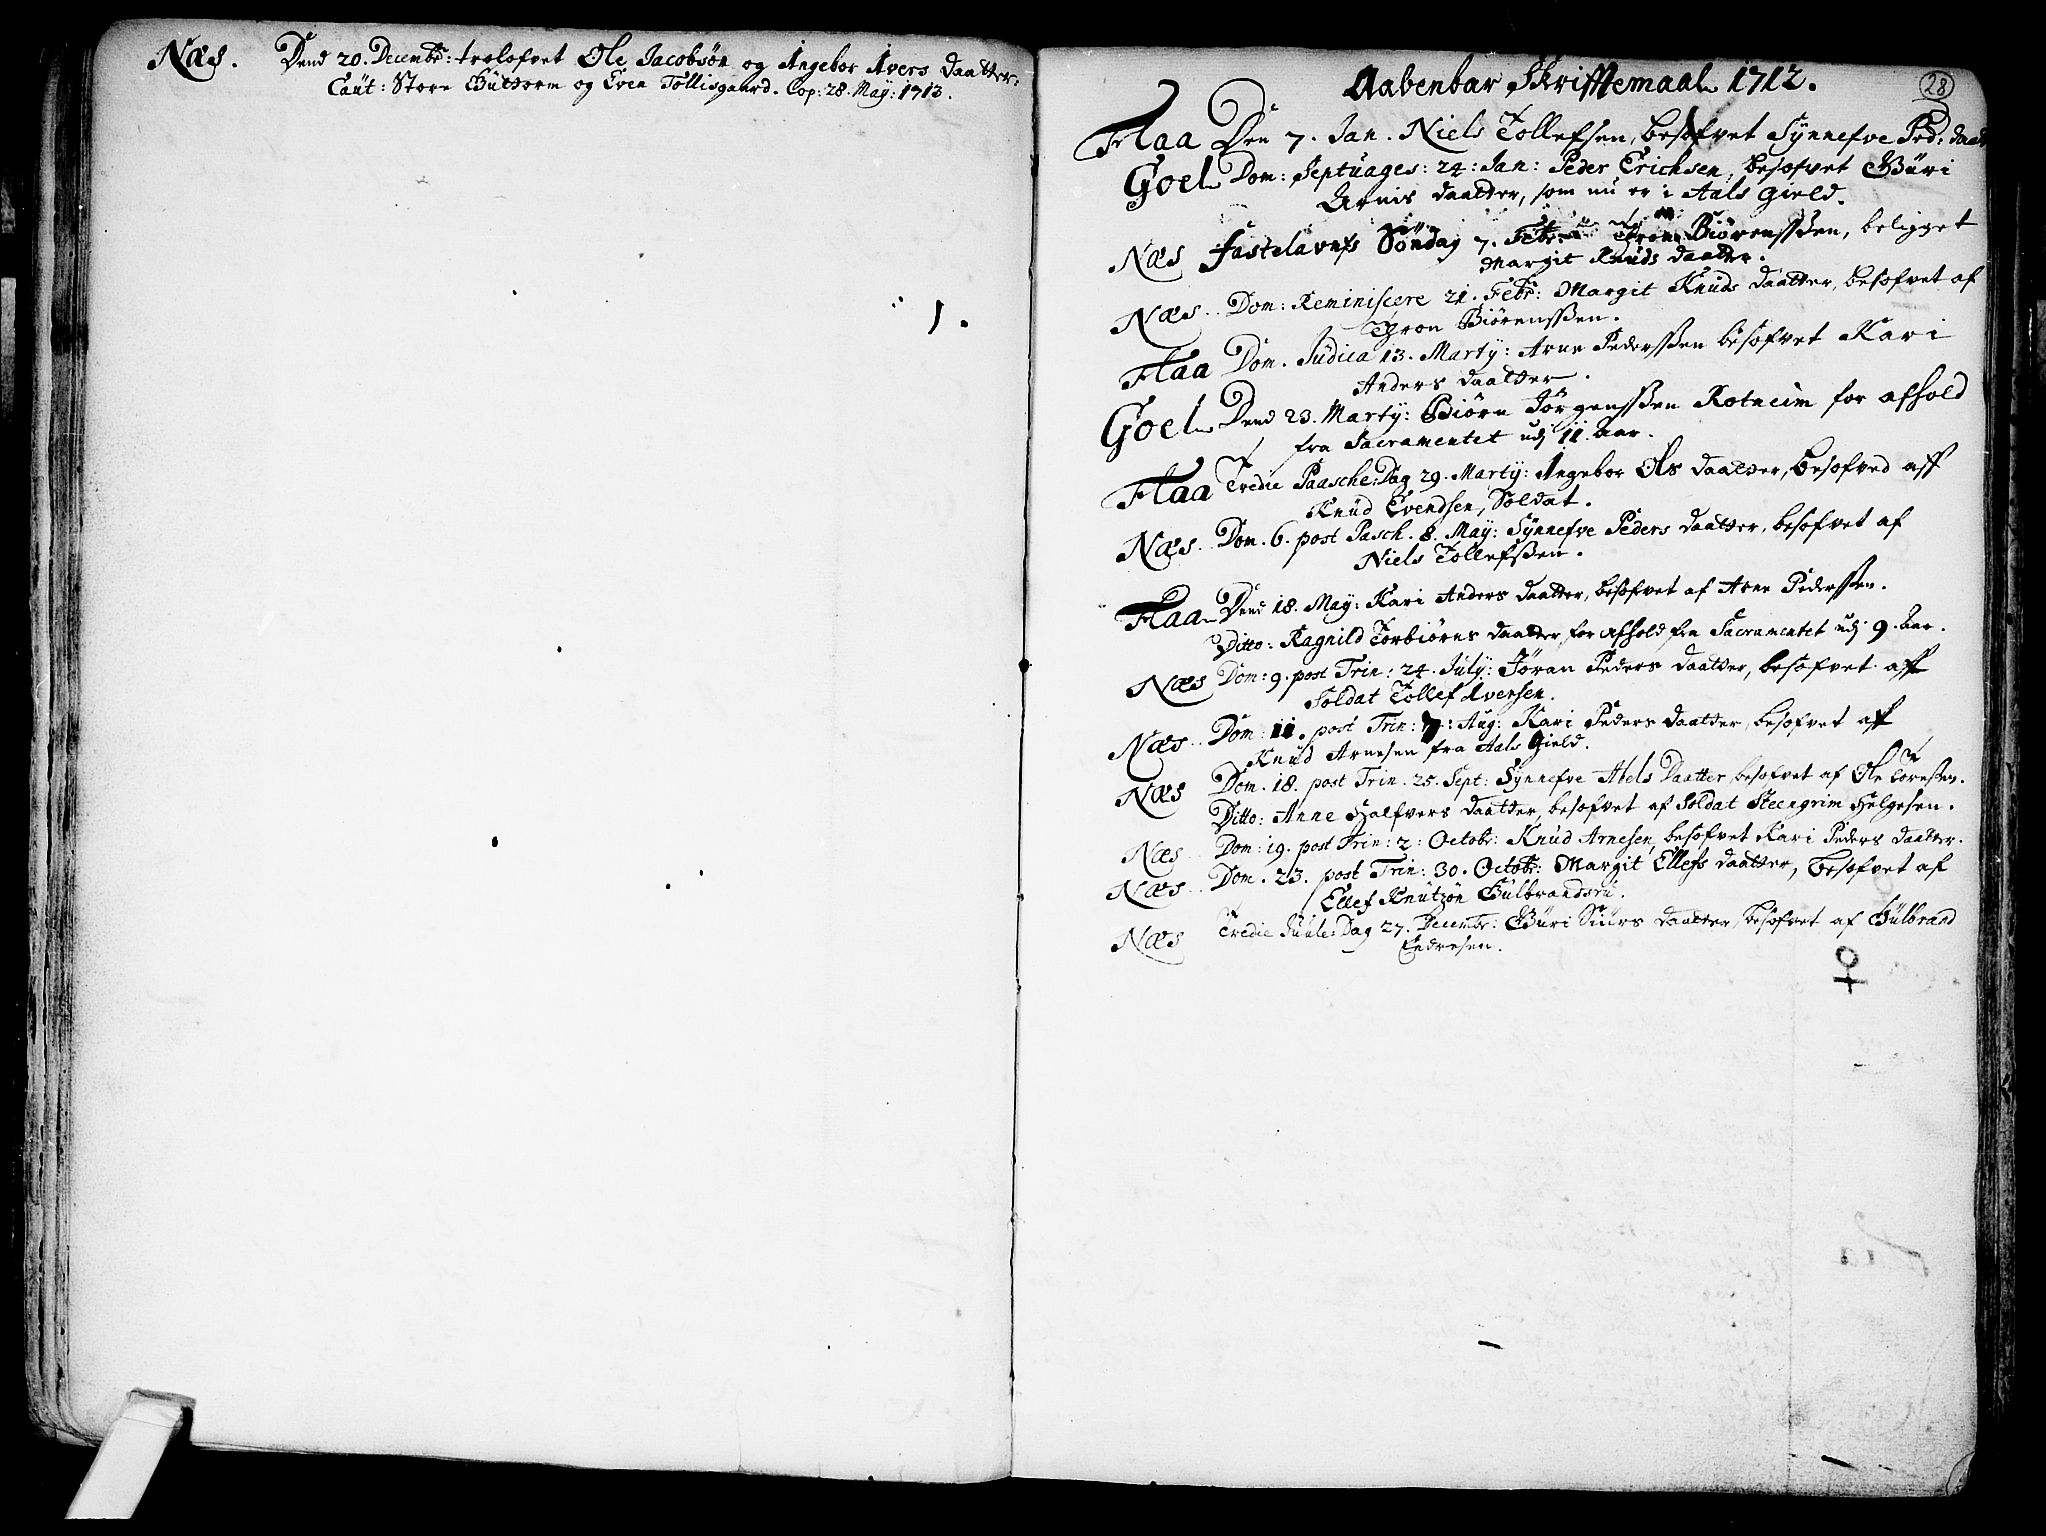 Næs. Dend 20. Decembr: trolofvet Ole Jacobsøn og Ingebor Ivers daatter.
Caut: Store Guttorm og Even Tollisgaard. Cop: 28. May: 1713.
Aabenbar Skrifftemaal 1712.
28
Flaa Den 7. Jan. Niels Tollefsen, besofvet Synnefve Ped: daat
Goel Dom: Septuages: 24: Jan: Peder Erichsen, besofvet Guri
Arnis daatter, som nu er i Aals gield.
Næs Fastelavnfs Søndag 7. Febr: Tron Biørenssen, beligget
Margit Knuds daatter.
Næs.. Dom: Reminiscere 21. Febr: Margit Knuds daatter, besofvet af
Tron Biørenssen.
Flaa Dom. Judica 13. Martij: Arne Pederssen besofvet Kari
Anders daatter.
Goel Dend 23. Martij: Biørn Jørgenssen Rotneim for afhold
fra Sacramentet udj 11 Aar.
Flaa Tredie Paasche:Dag 29. Martij: Ingebor Ols daatter, besofved aff
Knud Evendsen, Soldat.
Næs.. Dom. 6. post Pasch. 8. May: Synnefve Peders daatter, besofvet af
Niels Tollefssen.
Flaa Dend 18. May: Kari Anders daatter, besofvet af Arne Pederssen.
Ditto: Ragnild Torbiørns daatter for afhold fra Sacramentet udj 9. Aar.
Næs Dom: 9. post Trin: 24. July: Jøran Peders daatter, besofvet aff
Soldat Tollef Iversen.
Næs.. Dom: 11. post Trin: 7: Aug: Kari Peders daatter, besofvet af
Knud Arnesen fra Aals Gield.
Næs Dom. 18. post Trin. 25. Sept: Synnefve Abels Daatter besofvet af Ole Toressen.
Ditto: Anne Halfvors daatter, besofvet af Soldat Steengrim Helgesen.
Næs.. Dom: 19. post Trin: 2: Octobr: Knud Arnesen, besofvet Kari Peders daatter.
Næs.. Dom. 23. post Trin: 30. Octobr: Margit Ellefs daatter, besofvet af
Ellef Knutzøn Gulbrandsru.
Næs Tredie Juule:Dag 27. Decembr: Guri Siurs daatter besofvet af Gulbrand
Endresen.